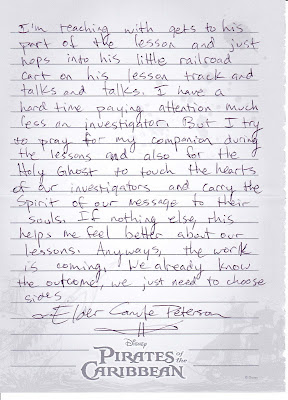 I'm teaching with gets to his
part of the lesson and just
hops into his little railroad
cart on his lesson track and
talks and talks. I have a
hard time paying attention much
less an investigator. But I try
to pray for my companion during
the lessons and also for the
Holy Ghost to touch the hearts
of our investigators and carry the
Spirit of our message to their
souls. If nothing else, this
helps me feel better about our
lessons. Anyways, the work
is coming, We already know
the outcome, we just need to choose
sides
Elder Peterson
Disney
PIRATES of the
CARIBBEAN